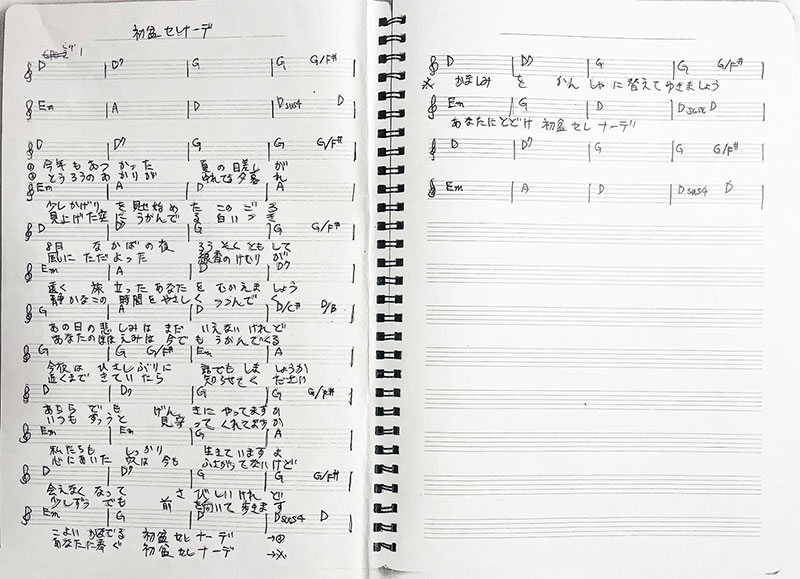 初盆セレナーデ
D D7 G G G/F#
Em A D Dsus4 D
D D7 G G G/F#
① 今年もあつかった 夏の日差しが
② とうろうのあかりが ゆれてる夕暮れ
Em A D A
少しかげりを見せ始めたこのごろ
見上げた空にうかんでる白いつき
D D7 G G G/F#
8月 なかばの夜 ろうそくともして
風にただよった 線香のけむりが
Em A D D7
遠く 旅立ったあなたをむかえましょう
静かなこの時間をやさしくつつんでく
G A D D/C# D/B
あの日の悲しみは まだ いえないけれど
あなたのほほえみは今でもうかんでくる
G G G/F# Em A
今夜は ひさしぶりに 話でもしましょうか
近くまできていたら 知らせてください
D D7 G G G/F#
あちらでも げんきにやってますか
いつもずっと 見守ってくれてますか
Em Em G A
私たちも しっかり 生きていますよ
心にあいた穴は今も ふさがってないけど
D D7 G G G/F#
会えなくなって さびしいけれど
少しずつでも 前を向いて歩きます
Em G D Dsus4 D
こよい かなでる 初盆セレナーデ →②
あなたに奉ぐ 初盆セレナーデ →※
D D7 G G G/F#
※ かなしみを かんしゃに替えてゆきましょう
Em G D Dsus4 D
あなたにとどけ 初盆セレナーデ
D D7 G G G/F#
Em A D Dsus4 D